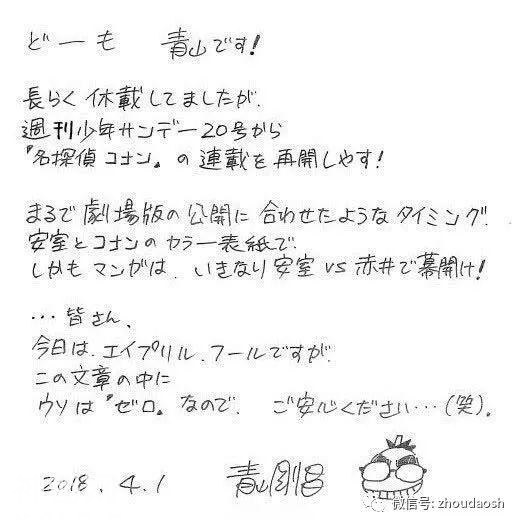 どーも 青山です!
長らく休載してましたが、
週刊少年サンデー20号から
『名探偵コナン』の連載を再開しやす!
まるで劇場版の公開に合わせたようなタイミング、
安室とコナンのカラー表紙で、
しかもマンガは、いきなり安室vs赤井で幕開け!
…皆さん、
今日は、エイプリル、フールですが、
この文章の中に
ウソは『ゼロ』なので、ご安心ください…(笑)。
2018.4.1 青山剛昌
微信号: zhoudaosh